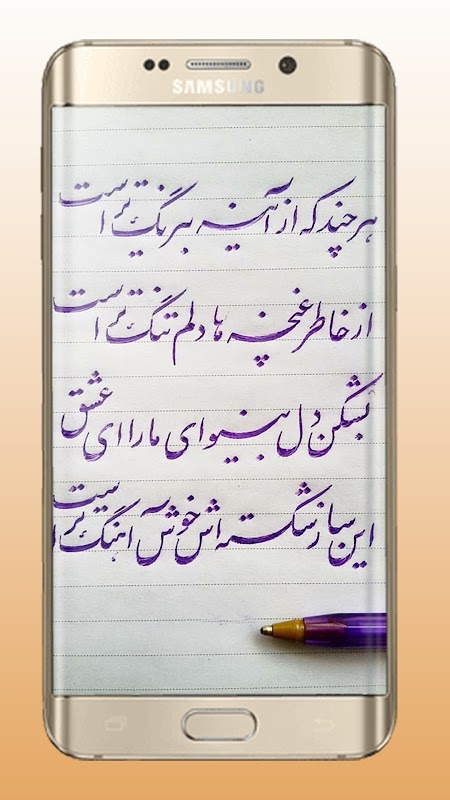 SAMSUNG
هر چند که از آینه بیرنگ تر است
از خاطر غنچه ها دلم تنگ تر است
بشکن دل بینوای ما را ای عشق
این ساز شکسته اش خوش آهنگ تر است